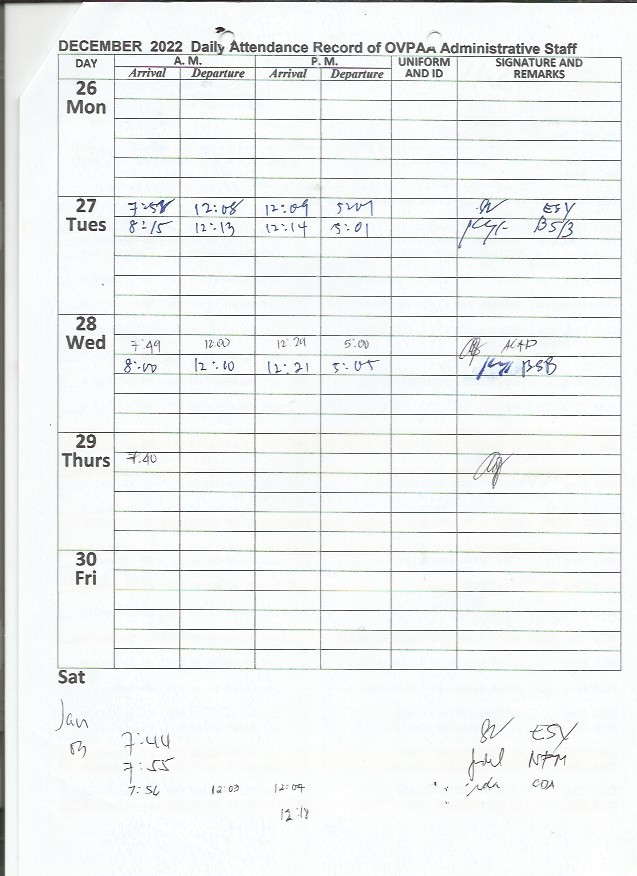 DECEMBER 2022 Daily Attendance Record of OVPAA Administrative Staff
DAY A. M. P. M. UNIFORM AND ID SIGNATURE AND REMARKS
Arrival Departure Arrival Departure
26
Mon
27 7:58 12:08 12:09 ESY
Tues 8:15 12:13 12:14 5:01 BSB
28
Wed 7:49 12:00 12:20 5:00
8:00 12:00 12:21 5:05 BSB
29
Thurs 7:40
30
Fri
Sat
Jan
03 7:44 ESY
7:55 NFM
7:56 12:03 12:04 CDA
12:18